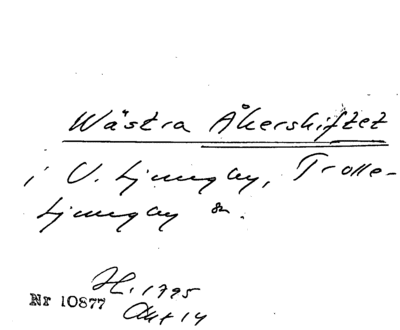 Wästra Åkershiftet
i V. Ljungby, Trolle-
Ljungby sn.
H. 1795
Akt 14
Nr 10877